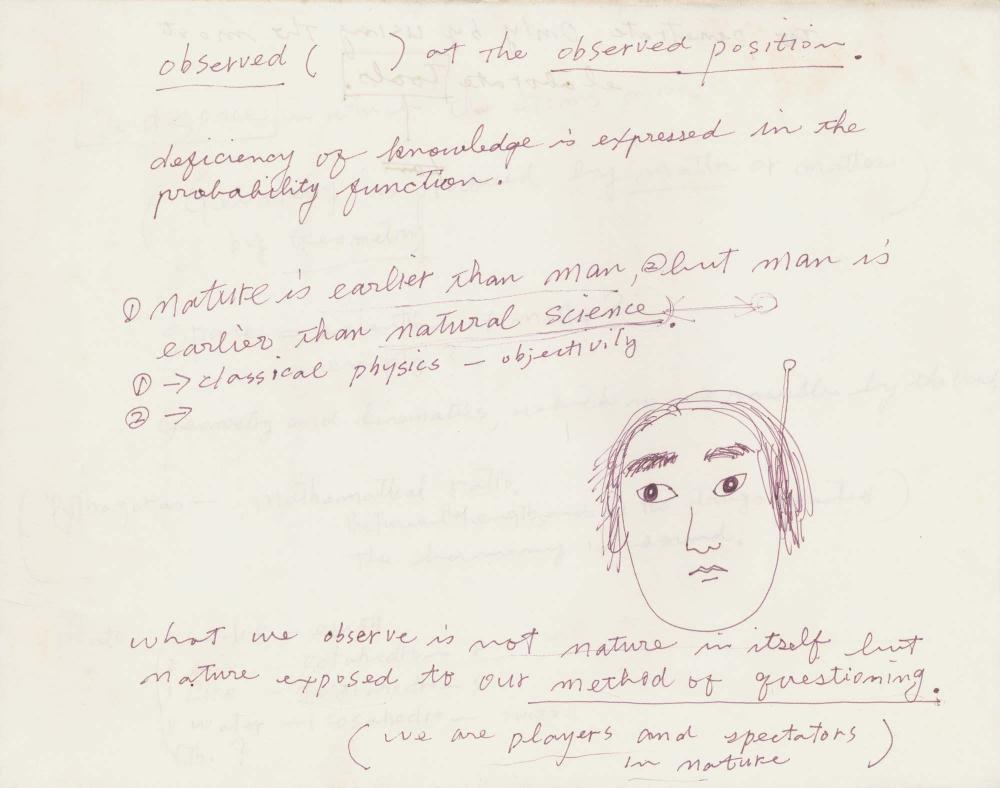 observed ( ) at the observed position.
deficiency of knowledge is expressed in the
probability function.
① nature is earlier than man, ② but man is
earlier than natural science.
① → classical physics — objectivity
② →
what we observe is not nature in itself but
nature exposed to our method of questioning.
(we are players and spectators
in nature)